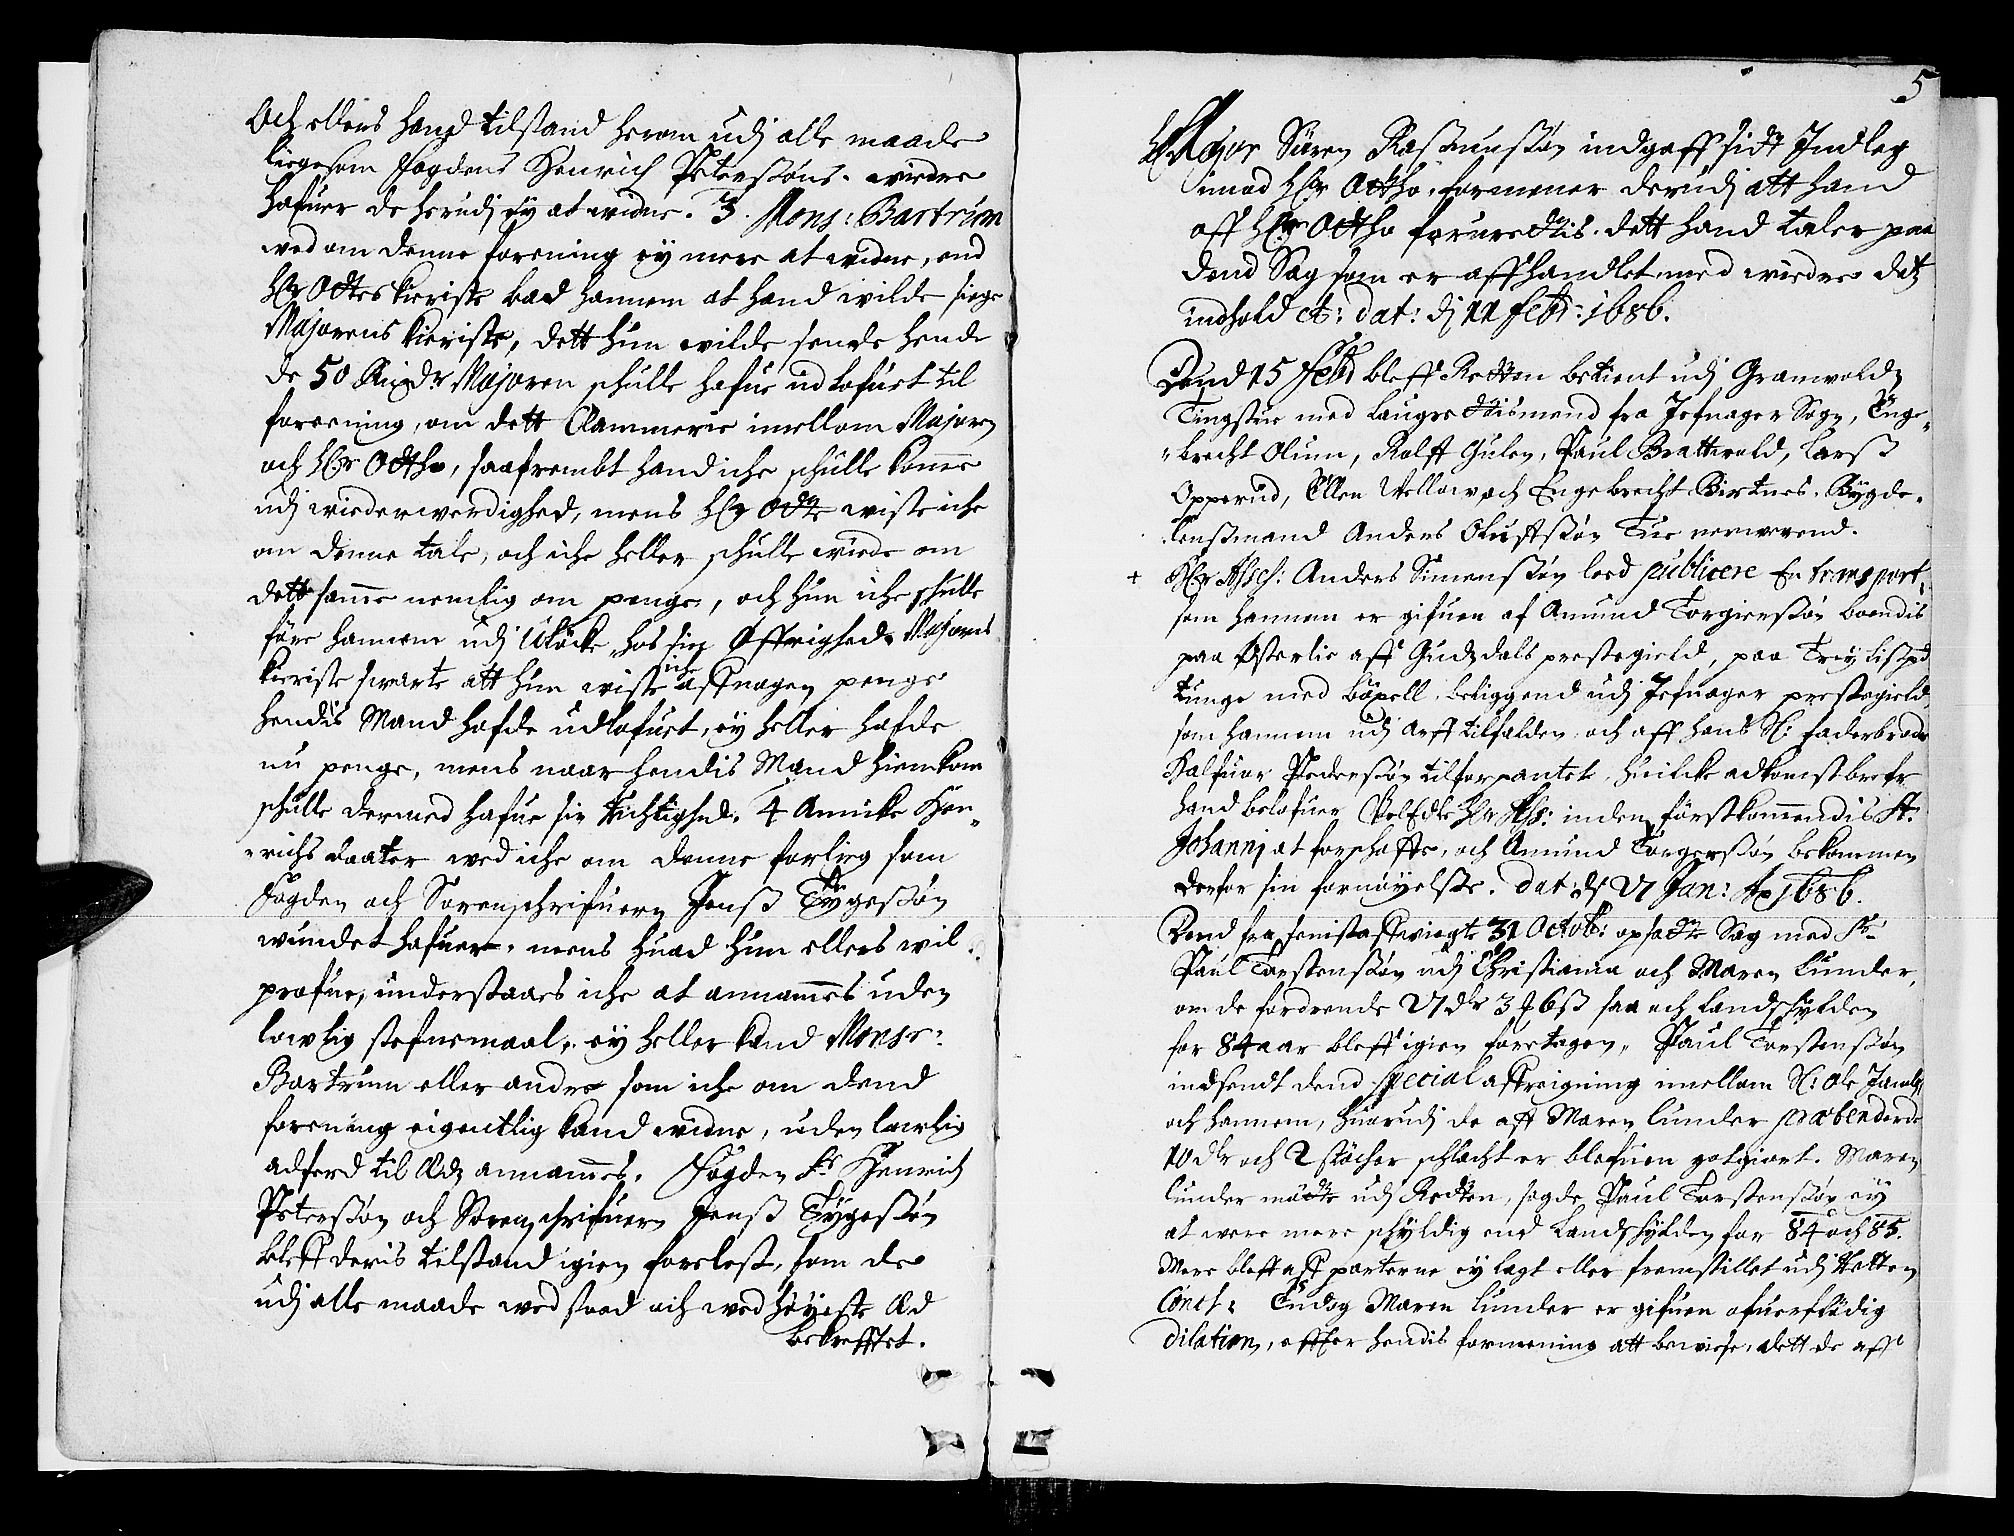 Och ellers hand tilstand herom udj alle maade
ligesom fogdens Henrich Peterssøns. widre
hafuer de herudj ey at widne. 3. Mons: Bartrum
wed om denne forening ey mere at widne, end
hr Ottes kieriste bad hannem at hand wilde sige
Majorens kieriste, dett hun wilde sende hende
de 50 Rixdr Majoren schulle hafue udlofuet til
foreening, om dett Clammerie imellom Majoren
och hr Ottho, saafrembt hand iche schulle komme
udj wiederwerdighed, mens hr Otte wiste iche
om denne tale, och iche heller schulle wiede om
dett samme nemlig om penge, och hun iche schulle
føre hannem udj Ulöcke hos sin Øffrighed. Majorens
kieriste swarte att hun wiste iche aff nogen penge
hendis Mand hafde udlofuet, ey heller hafde
nu penge, mens naar hendis Mand hiemkom
schulle dermed hafue sin Richtighed. 4 Annike Hen-
richs daater wed iche om denne forlig som
Fogden och Sorenschrifuern Jenss Tygessøn
wundet hafuer, mens huad hun ellers wil
profue, understaaes iche at annammes uden
lowlig stefnemaal, ey heller kand Monsr:
Bartrum eller andre som iche om dend
forening eigentlig kand widne, uden lowlig
adferd til Æd annammes. Fogden Sr Henrich
Peterssøn och Sorenschrifuern Jenss Tygessøn
bleff deris tilstand igien forelest, som de
udj alle maade wed stood och wed høyeste Æd
bekrefftet.
5
Major Sören Rassmussøn indgaff sidt Indleg
imod hr Ottho, formener derudj att hand
aff hr Ottho forurettis. dett hand taler paa
dend Sag som er affhandlet med wiedre detz
indhold etc: dat: dj 11 Febr: 1686.
Dend 15 Febr bleff Retten betient udj Granwoldz
Tingstue med Laugrettismend fra Jefnager Sogn, Enge-
brecht Olum, Rolff Gulen, Paul Brattwold, Larss
Opperud, Ellen Vellow och Engebrecht Birtnes. Bygde-
lenssmand Anders Olufssøn Tue nerwerend.
+ Hr Assess: Anders Simenssøn loed publicere En transport,
som hannem er gifuen af Amund Torgierssøn boendis
paa Østerlie aff Gudzdals prestegield, paa Trey lispd
tunge med böxell, beliggend udj Jefnager prestegield
som hannem udj arff tilfalden, och aff hans Sl: faderbrode
Halfuor Pederssøn tilforpantet, huilcke adkomstbrefe
hand belofuer VelEdle Hr Ass: inden förstkommendis St:
Johannj at forschaffe, och Amund Torgerssøn bekommen
derfor sin fornöyelsse. dat: dj 27 Jan: Ao 1686.
Dend fra senist affwigte 31 Octobr: opsatte Sag med Sr
Paul Torstenssøn udj Christiania och Maren Lunder,
om de fordrende 27 dlr 3 ƒ 6 ss saa och Landschylden
for 84 aar bleff igien foretagen, Paul Torstenssøn
indsendt dend special affreigning imellom Sl: Ole Jacobs
och hannem, huorudj de aff Maren Lunder prætenderde
10 dlr och 2 stöcher schlacht er blefuen gotgiort. Maren
Lunder mötte udj Retten, sagde Paul Torstenssøn ey
at were mere schyldig end Landschylden for 84 och 85.
Mere bleff aff parterne ey lagt eller fremstillet udj Retten
Conct: Endog Maren Lunder er gifuen ofuerflödig
dilation, effter hendis formening att bewise, dett de aff